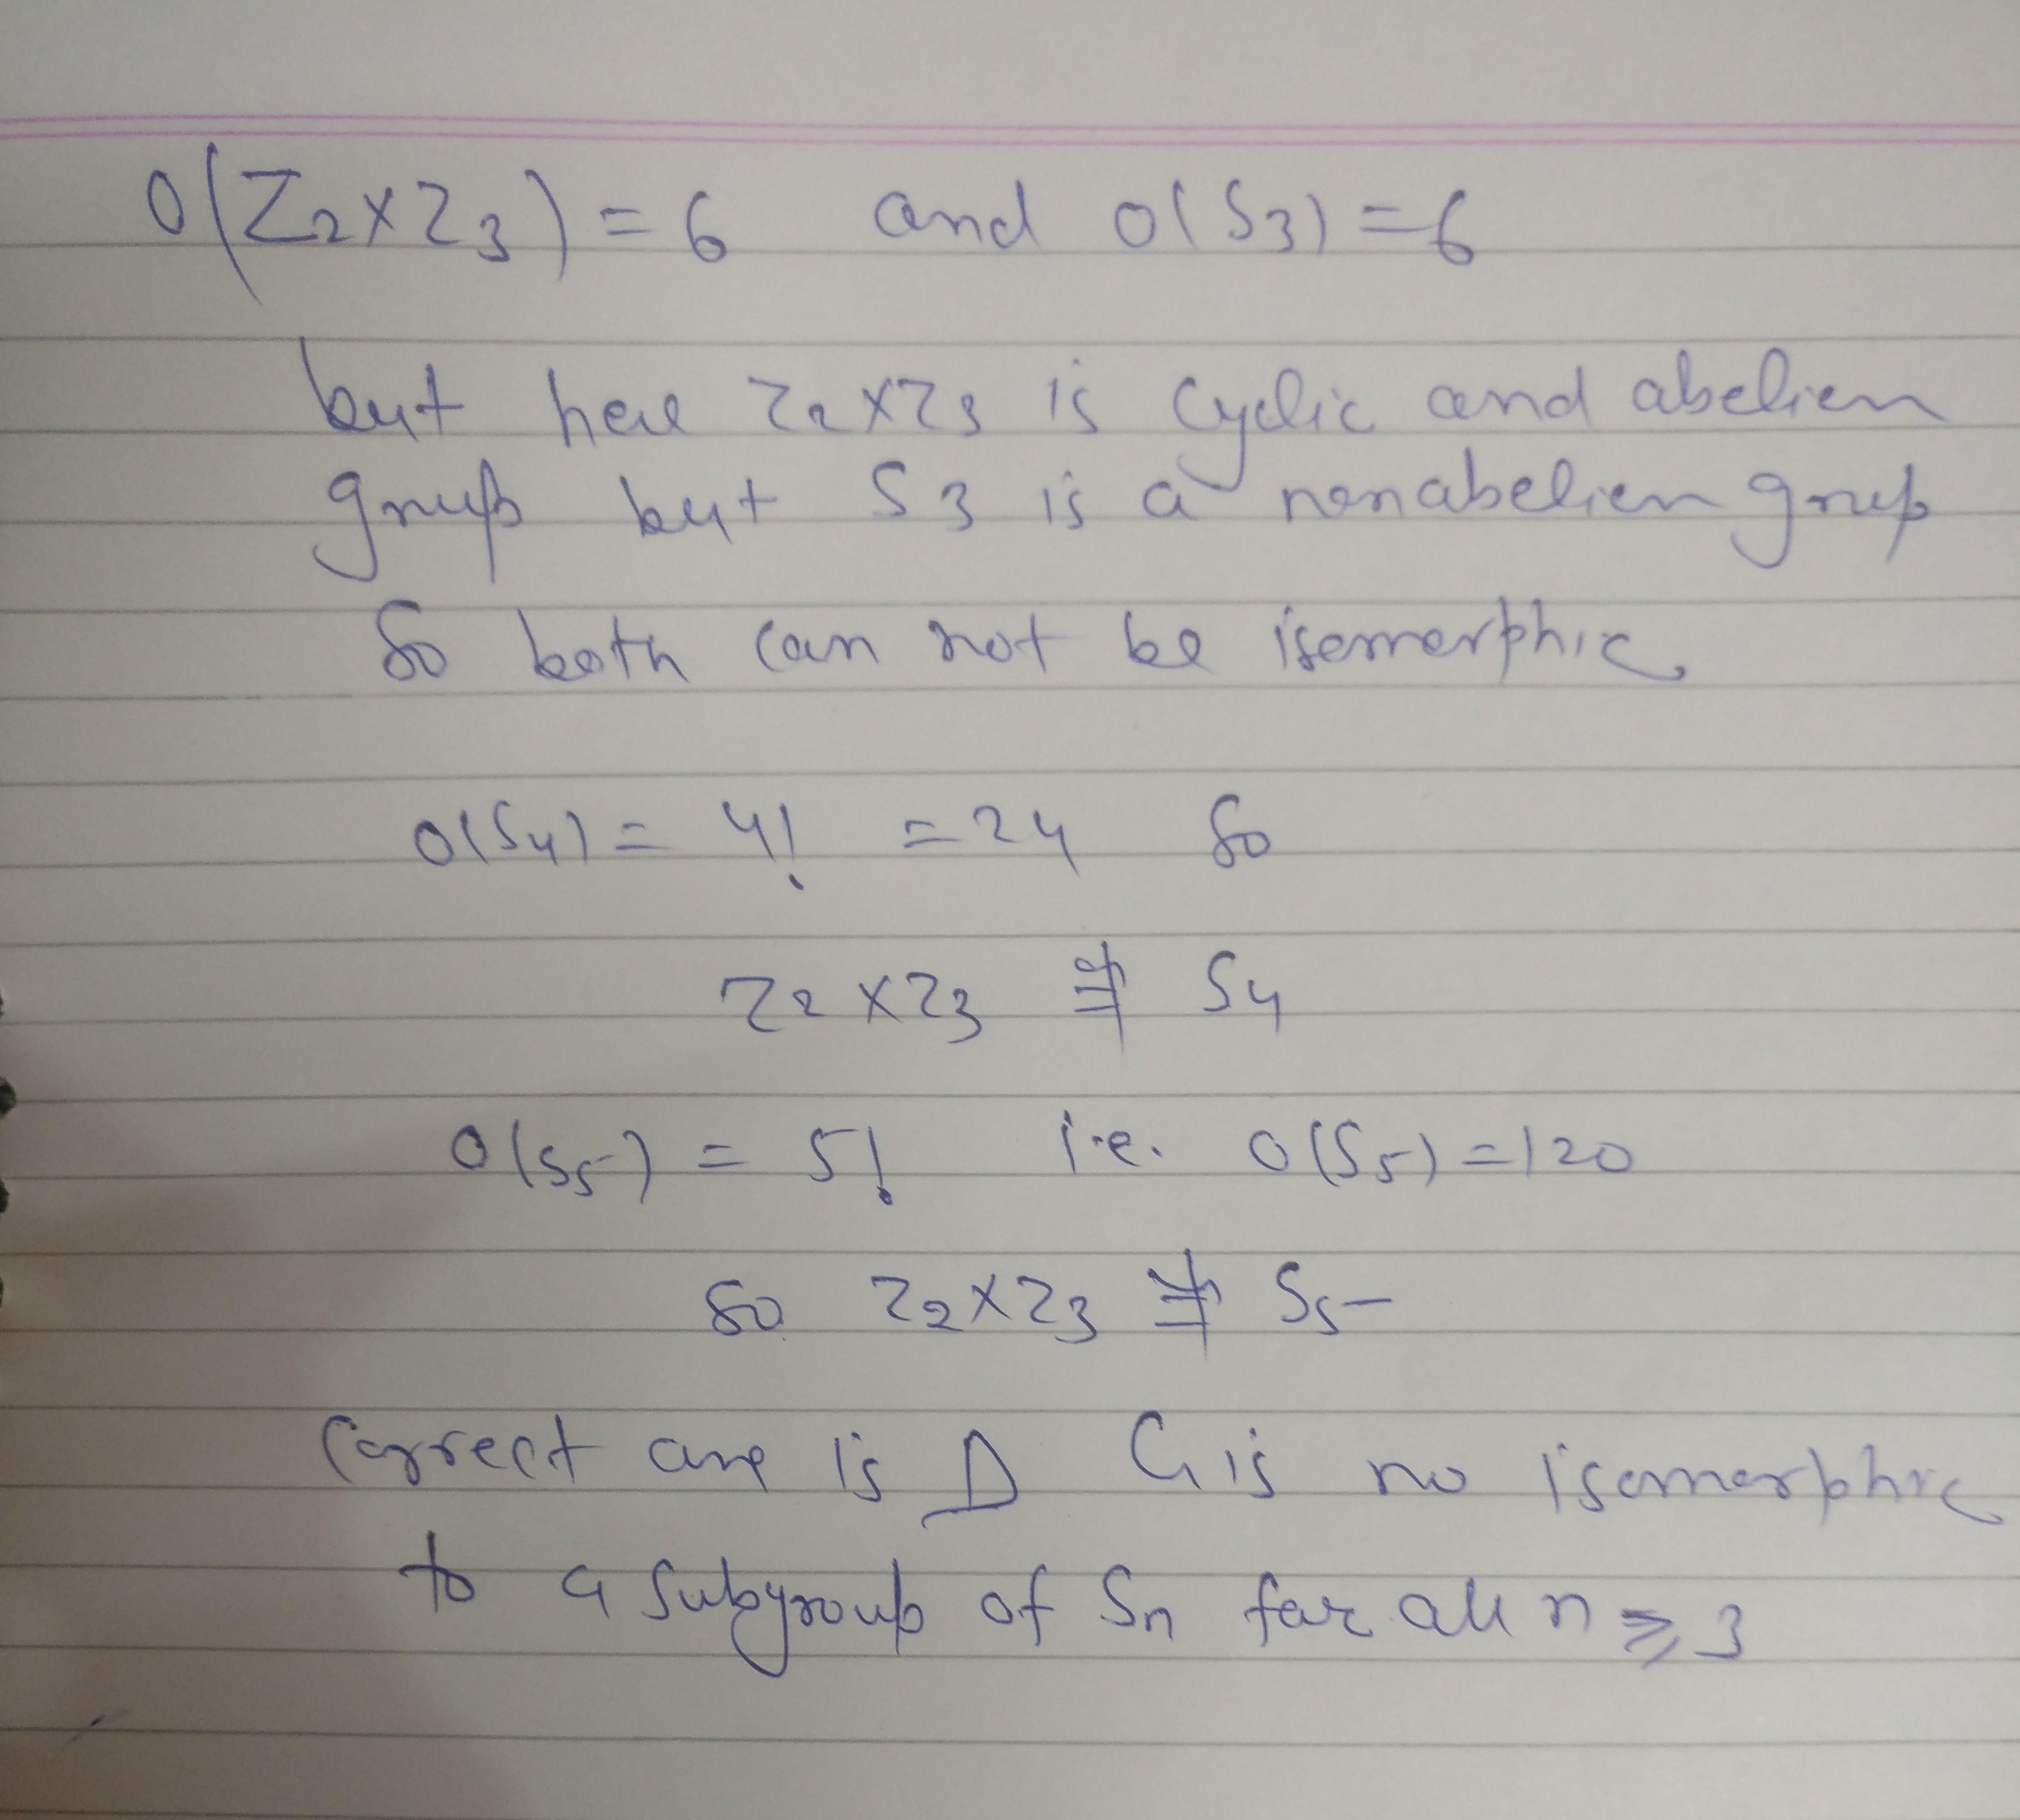 O(Z2×Z3) = 6 and O(S3) = 6
but here Z2×Z3 is cyclic and abelien
group but S3 is a nonabelien group
So both can not be isomorphic
O(S4) = 4! = 24 So
Z2×Z3 ≇ S4
O(S5) = 5! i.e. O(S5) = 120
So Z2×Z3 ≇ S5
Correct ans is D G is no isomorphic
to a subgroup of Sn for all n ⩾ 3